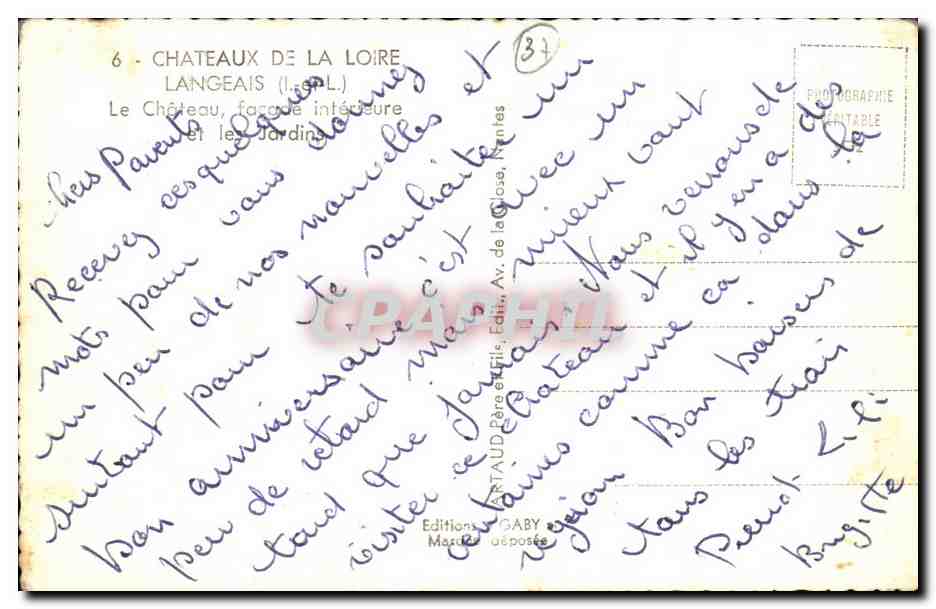 6 - CHATEAUX DE LA LOIRE
LANGEAIS (I.-et-L.)
Le Château, façade intérieure
et les Jardins
37
PHOTOGRAPHIE
VÉRITABLE
ARTAUD Père et Fils, Édit., Av. de la Close, Nantes
Editions GABY
Marque déposée
CPAPHIL
Chers Parents
Recevez ces quelques
mots pour vous donnez
un peu de nos nouvelles et
surtout pour te souhaiter un
bon anniversaire c'est avec un
peu de retard mais mieux vaut
tard que Jamais. Nous venons de
visiter ce Château et il y en a des
centaines comme ca dans la
région Bon baisers de
tous les trois
Pierrot Lili
Brigitte